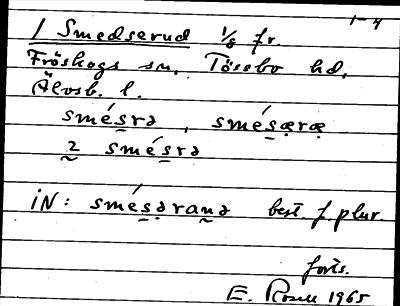 1-4
1 Smedserud 1/8 fr.
Fröskogs sn. Tössbo hd.
Älvsb. l.
smésrə, smésæræ
2 smésrə
iN: smésəranə best. f. plur.
forts.
E. Rosell 1965